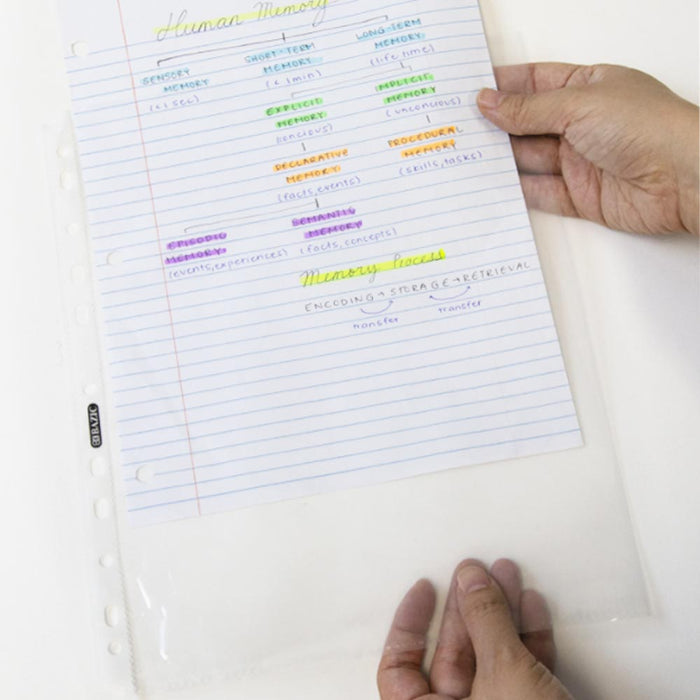 Human Memory
SENSORY MEMORY
(<1 sec)
SHORT-TERM MEMORY
(<1min)
LONG-TERM MEMORY
(life time)
EXPLICIT MEMORY
(conscious)
IMPLICIT MEMORY
(unconscious)
DECLARATIVE MEMORY
(facts, events)
PROCEDURAL MEMORY
(skills, tasks)
EPISODIC MEMORY
(events, experiences)
SEMANTIC MEMORY
(facts, concepts)
Memory Process
ENCODING → STORAGE → RETRIEVAL
transfer transfer
BAZIC